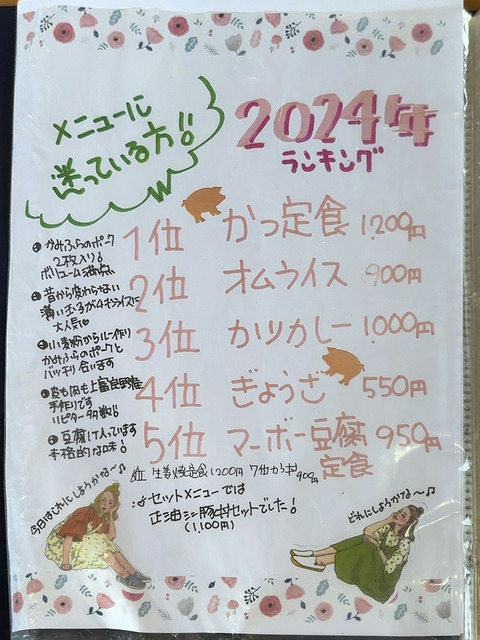 メニューに
迷っている方!!
2024年
ランキング
1位 かつ定食 1.200円
2位 オムライス 900円
3位 カツカレー 1.000円
4位 ぎょうざ 550円
5位 マーボー豆腐 950円
定食
かみふらのポーク
2枚入り!
ボリューム満点
昔から変わらない
薄い玉子がオムライスに
大人気♡
小麦粉からルー作り
かみふらのポークと
バッチリ合います
皮も肉も上富良野産
手作りです
リピーター多数!!
豆腐け入っています
本格的な味!
6位 生姜焼定食1200円 7位かられ 900円
セットメニューでは
正油ミニ豚丼セットでした!
(1,100円)
今日はこれにしようかな〜♪
どれにしようかな〜♪